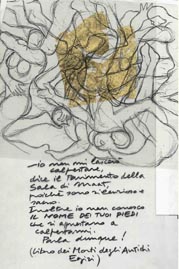 -io non mi lascerò
calpestare,
dice il Pavimento della
Sala di Maat,
poiché sono silenzioso e
sacro.
Inoltre io non conosco
IL NOME DEI TUOI PIEDI
che si apprestano a
calpestarmi.
Parla dunque!
(Libro dei Morti degli Antichi
Egizi)